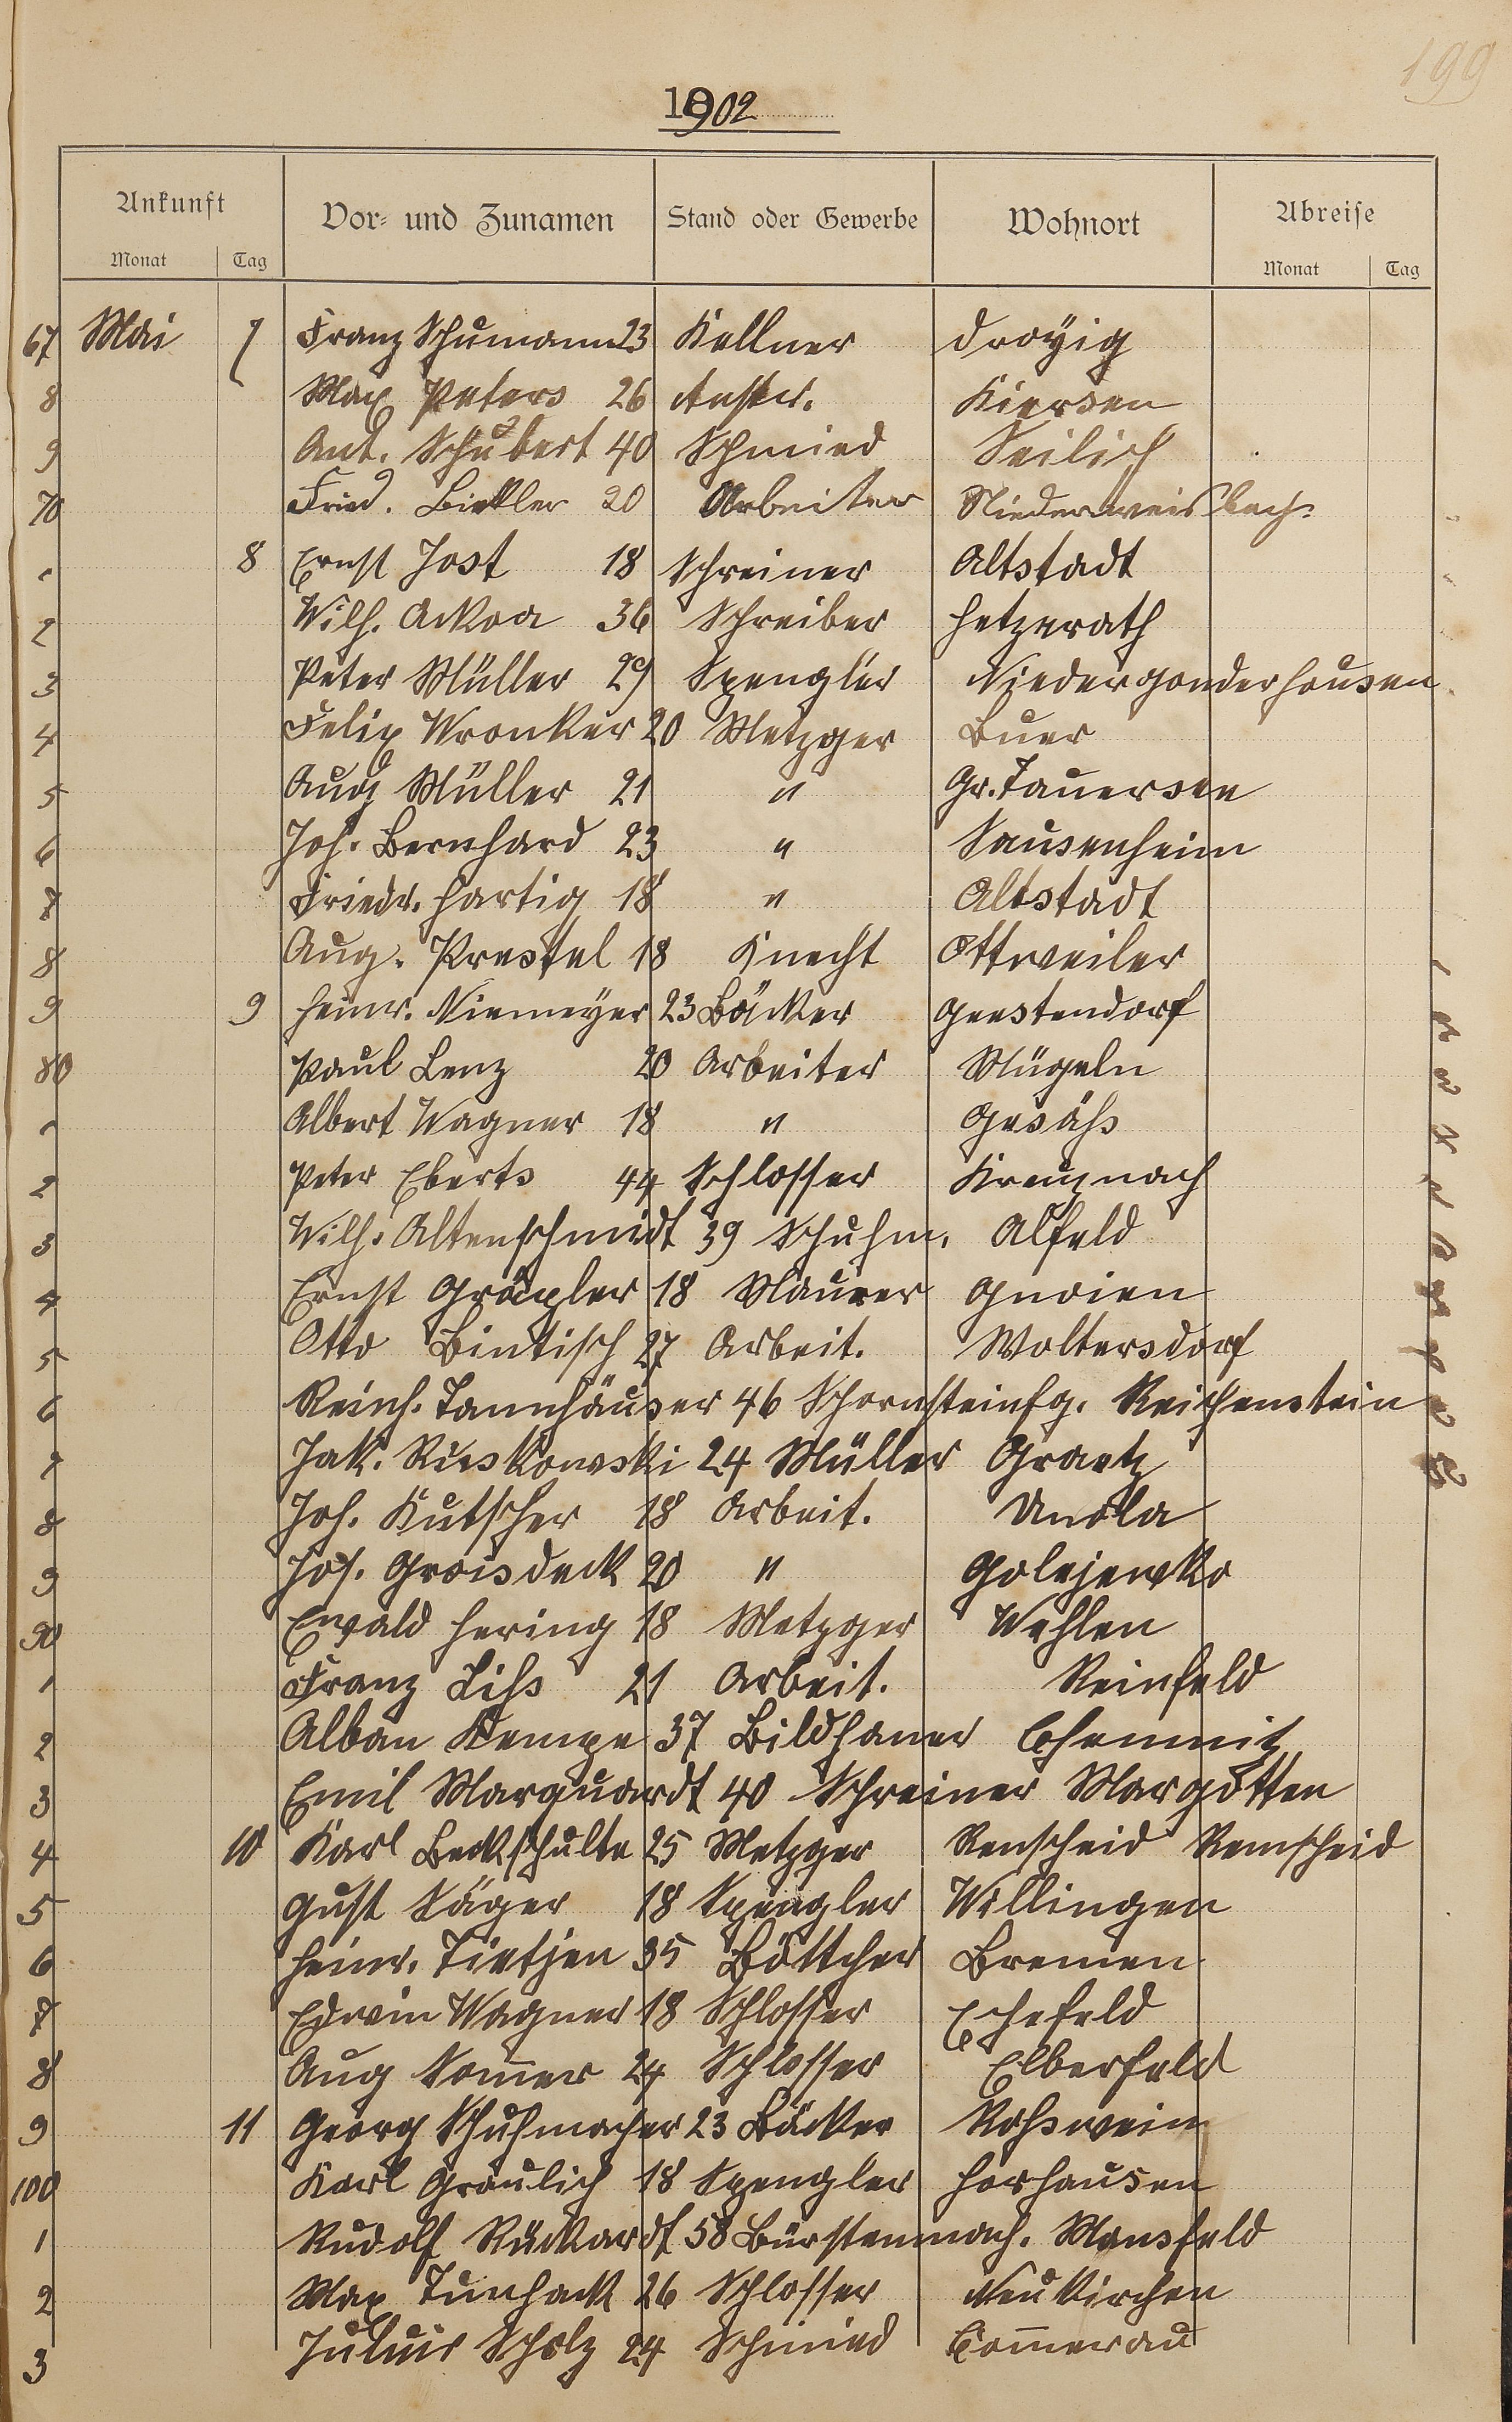 199
1902
Ankunft Vor- und Zunamen Stand oder Gewerbe Wohnort Abreise
Monat Tag Monat Tag
67 Mai 7 Franz Schumann 23 Kellner Droyßig
8 Max Peters 26 Anstr. Kiersen
9 Ant. Schubert 40 Schmied Seilich
70 Fried. Birkler 20 Arbeiter Niederweisbach
1 8 Ernst Jost 18 Schreiner Altstadt
2 Wilh. Ackva 36 Schreiber Hetzerath
3 Peter Müller 29 Spengler Niedergonderhausen
4 Felix Wronker 20 Metzger Buer
5 Aug Müller 21 " Gr. Tauersee
6 Joh. Bernhard 23 " Sausenheim
7 Friedr. Hartig 18 " Altstadt
8 Aug. Prestel 18 Knecht Ottweiler
9 9 Heinr. Niemeyer 23 Bäcker Geestendorf
80 Paul Lenz 20 Arbeiter Mügeln
1 Albert Wagner 18 " Gesäß
2 Peter Eberts 44 Schlosser Kreuznach
3 Wilh. Altenschmidt 39 Schuhm. Alfeld
4 Ernst Gröpler 18 Maurer Gnoien
5 Otto Bintisch 27 Arbeit. Woltersdorf
6 Reinh. Tannhäuser 46 Schornsteinfg. Reichenstein
7 Jak. Rieskowski 24 Müller Graetz
8 Joh. Kutscher 18 Arbeit.
9 Jos. Groisdeck 20 " Golejewko
90 Ewald Hering 18 Metzger Wehlen
1 Franz Liss 21 Arbeit. Reinfeld
2 Alban Kempe 37 Bildhauer Chemnitz
3 Emil Marquardt 40 Schreiner Margotten
4 10 Karl Beckschulte 25 Metzger Renscheid Remscheid
5 Gust Säger 18 Spengler Willingen
6 Heinr. Tietjen 35 Böttcher Bremen
7 Edwin Wagner 18 Schlosser Echefeld
8 Aug Sommer 24 Schlosser Elberfeld
9 11 Georg Schuhmacher 23 Bäcker Roßwein
100 Karl Graulich 18 Spengler Horhausen
1 Rudolf Rückardt 58 Bürstenmach. Mansfeld
2 Max Tunhack 26 Schlosser Neukirchen
3 Julius Scholz 24 Schmied Commerau